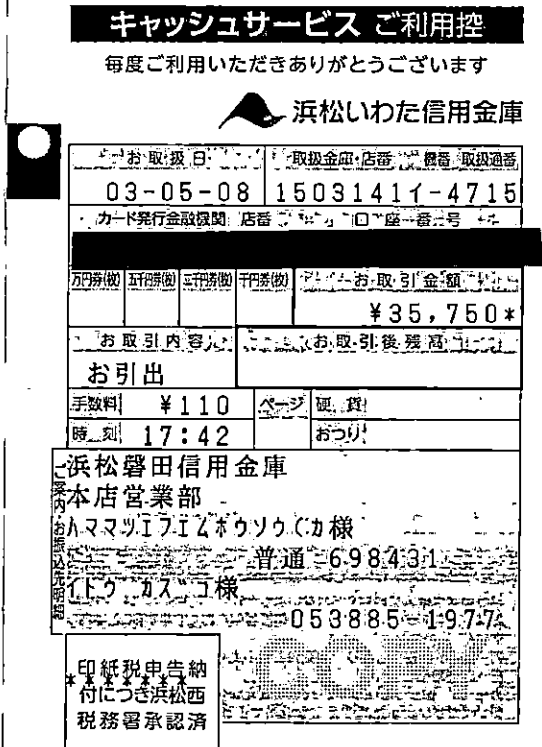 キャッシュサービス ご利用控
毎度ご利用いただきありがとうございます
浜松いわた信用金庫
お取扱日 取扱金庫・店番 機番 取扱通番
03-05-08 1503141イ-4715
カード発行金融機関 店番 口座番号
万円券(枚) 五千円券(枚) 弐千円券(枚) 千円券(枚) お取引金額
¥35,750*
お取引内容 お取引後残高
お引出
手数料 ¥110 ページ 硬貨
時刻 17:42 おつり
ご案内・お振込先明細
浜松磐田信用金庫
本店営業部
ハママツエフエムホウソウ(カ様
普通 698431
イトウ カズコ様
053885-1977
印紙税申告納
付につき浜松西
税務署承認済
COPY